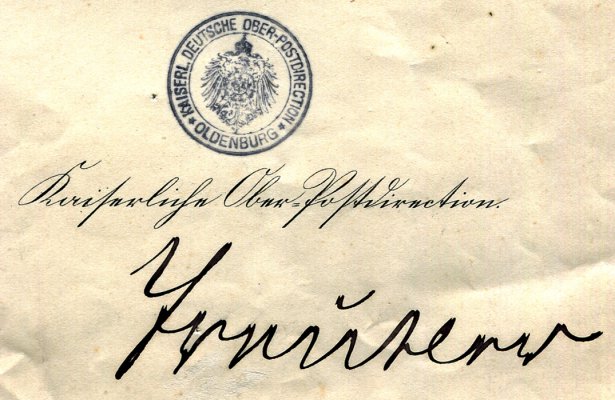 KAISERL. DEUTSCHE OBER-POSTDIRECTION
* OLDENBURG *
Kaiserliche Ober-Postdirection.